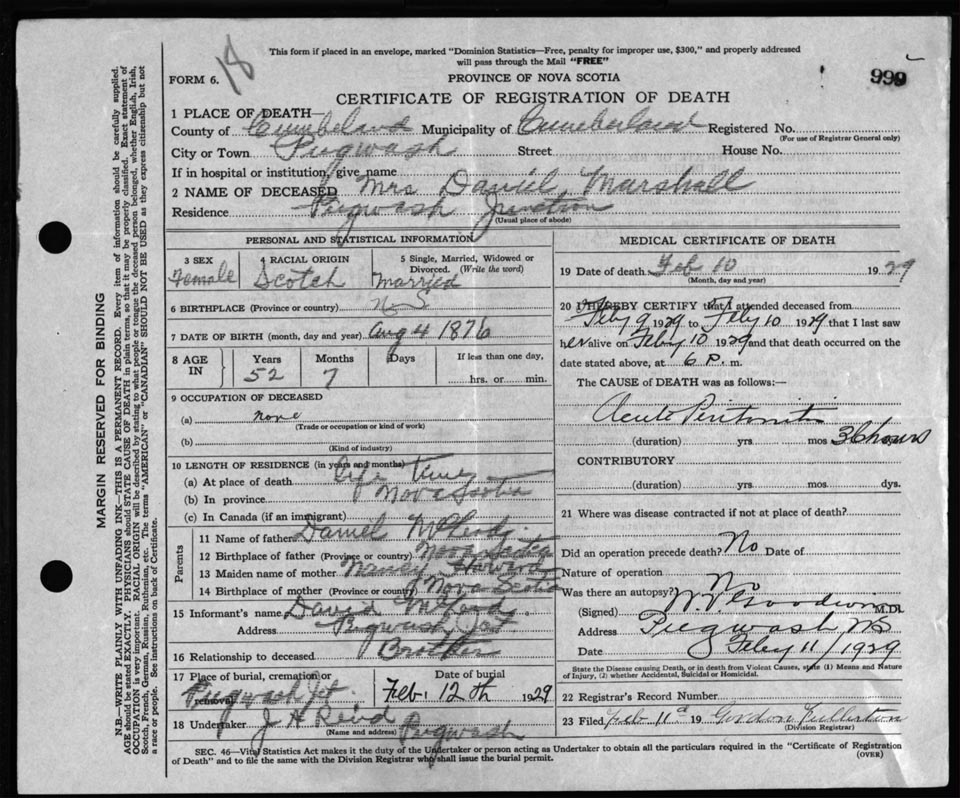 18
This form if placed in an envelope, marked "Dominion Statistics—Free, penalty for improper use, $300," and properly addressed
will pass through the Mail "FREE"
FORM 6.
PROVINCE OF NOVA SCOTIA
999
CERTIFICATE OF REGISTRATION OF DEATH
1 PLACE OF DEATH—
County of Cumberland Municipality of Cumberland Registered No.
(For use of Registrar General only)
City or Town Pugwash Street House No.
If in hospital or institution, give name
2 NAME OF DECEASED Mrs Daniel Marshall
Residence Pugwash Junction
(Usual place of abode)
PERSONAL AND STATISTICAL INFORMATION
3 SEX Female
4 RACIAL ORIGIN Scotch
5 Single, Married, Widowed or Divorced. (Write the word) Married
6 BIRTHPLACE (Province or country) N.S
7 DATE OF BIRTH (month, day and year) Aug 4 1876
8 AGE IN Years 52 Months 7 Days If less than one day, hrs. or min.
9 OCCUPATION OF DECEASED
(a) none
(Trade or occupation or kind of work)
(b)
(Kind of industry)
10 LENGTH OF RESIDENCE (in years and months)
(a) At place of death life time
(b) In province Nova Scotia
(c) In Canada (if an immigrant)
Parents
11 Name of father Daniel McLeod
12 Birthplace of father (Province or country) Nova Scotia
13 Maiden name of mother Nancy Howard
14 Birthplace of mother (Province or country) Nova Scotia
15 Informant's name David McLeod
Address Pugwash Jct
16 Relationship to deceased Brother
17 Place of burial, cremation or removal Pugwash Jct Date of burial Feb. 12th 1929
18 Undertaker J H Reid Pugwash
(Name and address)
MEDICAL CERTIFICATE OF DEATH
19 Date of death Feb 10 1929
(Month, day and year)
20 I HEREBY CERTIFY that I attended deceased from
Feby 9 1929 to Feby 10 1929 that I last saw
her alive on Feby 10 1929 and that death occurred on the
date stated above, at 6 P. m.
The CAUSE OF DEATH was as follows:—
Acute Peritonitis
(duration) yrs. mos 36 hours
CONTRIBUTORY
(duration) yrs. mos. dys.
21 Where was disease contracted if not at place of death?
Did an operation precede death? No Date of
Nature of operation
Was there an autopsy? No
(Signed) Goodwin M.D.
Address Pugwash NS
Date Feby 11/1929
State the Disease causing Death, or in death from Violent Causes, state (1) Means and Nature of Injury, (2) whether Accidental, Suicidal or Homicidal.
22 Registrar's Record Number
23 Filed Feb 11th 19 Gordon Fullerton
(Division Registrar)
SEC. 46—Vital Statistics Act makes it the duty of the Undertaker or person acting as Undertaker to obtain all the particulars required in the "Certificate of Registration
of Death" and to file the same with the Division Registrar who shall issue the burial permit.
(OVER)
MARGIN RESERVED FOR BINDING
N.B.—WRITE PLAINLY WITH UNFADING INK—THIS IS A PERMANENT RECORD. Every item of information should be carefully supplied.
AGE should be stated EXACTLY. PHYSICIANS should STATE CAUSE OF DEATH in plain terms, so that it may be properly classified. Exact statement of
OCCUPATION is very important. RACIAL ORIGIN will be described by stating to what people or tongue the deceased person belonged, whether English, Irish,
Scotch, French, German, Russian, Ruthenian, etc. The terms "AMERICAN" or "CANADIAN" SHOULD NOT BE USED as they express citizenship but not
a race or people. See instructions on back of Certificate.